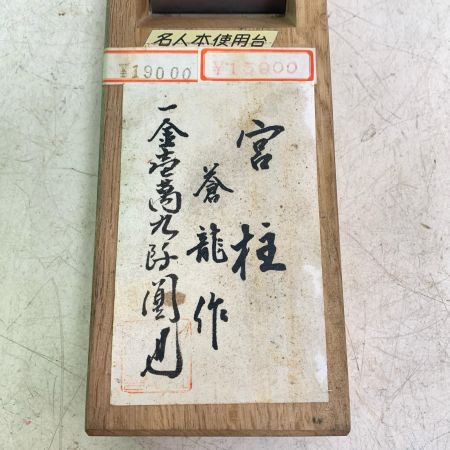 名人本使用台
¥19000
¥15000
宮柱
蒼龍作
一金壱萬九阡圓也